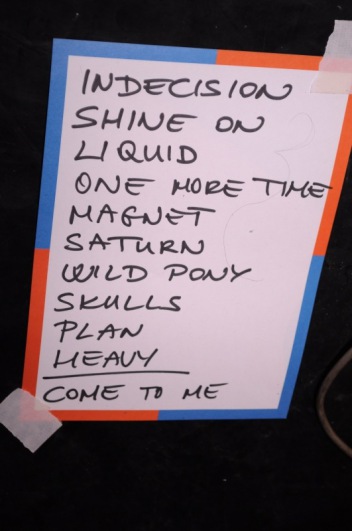 INDECISION
SHINE ON
LIQUID
ONE MORE TIME
MAGNET
SATURN
WILD PONY
SKULLS
PLAN
HEAVY
COME TO ME